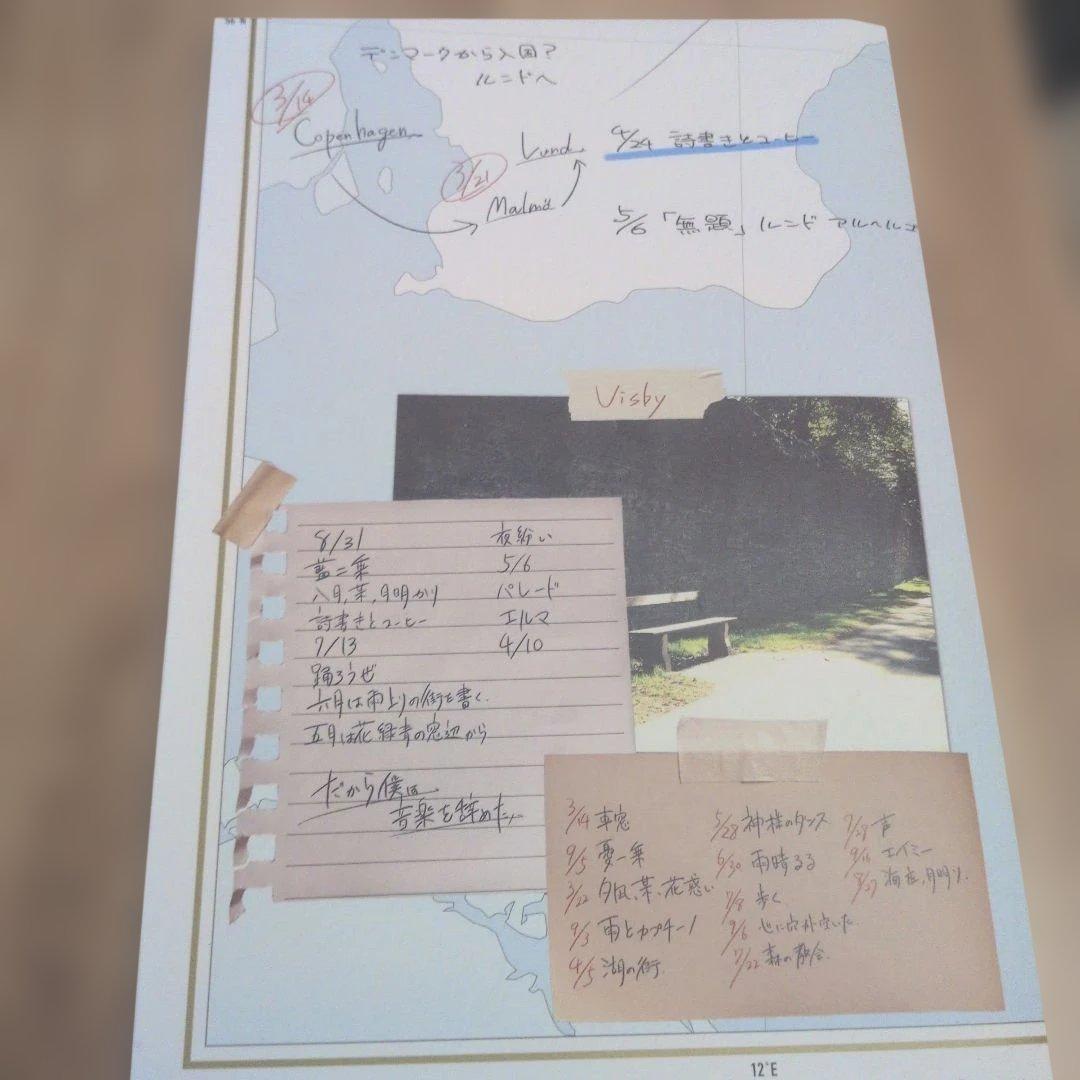 デンマークから入国?
ルンドへ
3/14
Copenhagen
Lund
4/24 詩書きとコーヒー
3/21
Malmö
5/6 「無題」 ルンド アルヘルゴ
Visby
8/31 夜紛い
藍二乗 5/6
八月、某、月明かり パレード
詩書きとコーヒー エルマ
7/13 4/10
踊ろうぜ
六月は雨上りの街を書く.
五月は花緑青の窓辺から
だから僕は
音楽を辞めた
3/14 車窓 5/28 神様のダンス 7/28 声
9/5 憂一乗 6/30 雨晴るる 9/16 エイミー
3/22 夕凪、某、花惑い 7/8 歩く 8/27 海底、月明り.
9/3 雨とカプチーノ 9/6 心に穴が空いた
4/5 湖の街 7/22 森の教会
12°E